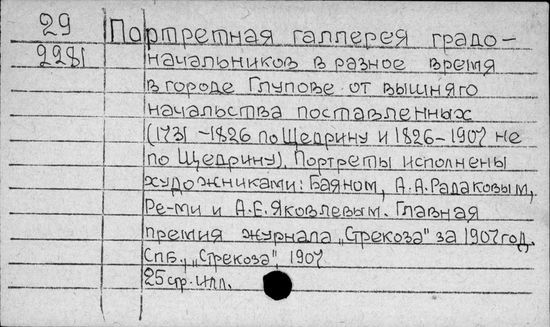 29
2281
Портретная галлерея градо-
начальников в разное время
в городе Глупове от вышняго
начальства поставленных
(1731 - 1826 по Щедрину и 1826-1907 не
по Щедрину). Портреты исполнены
художниками: Баяном, А.А.Радаковым,
Ре-ми и А.Е.Яковлевым. Главная
премия журнала „Стрекоза" за 1907 год.
Спб., „Стрекоза", 1907
25 стр. илл.